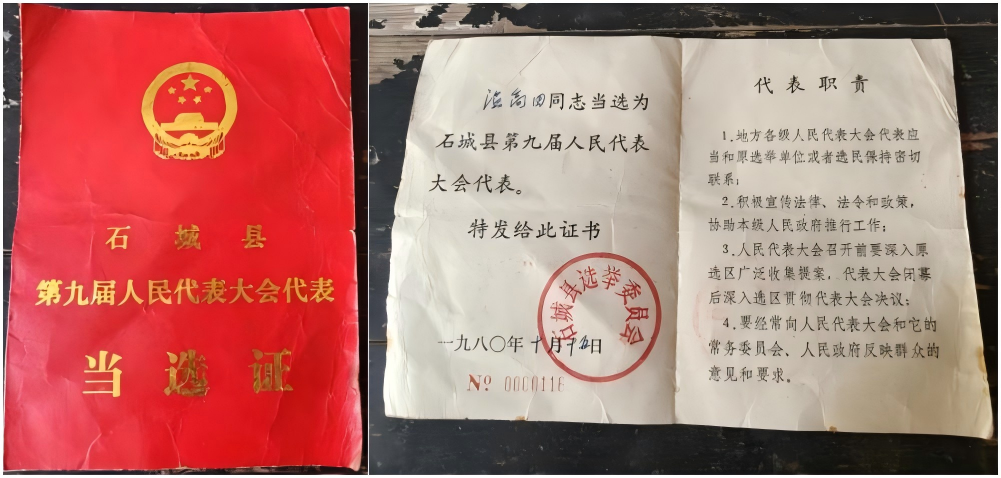 石城县
第九届人民代表大会代表
当选证
同志当选为
石城县第九届人民代表
大会代表。
特发给此证书
石城县选举委员会
一九八〇年十月十五日
№ 0000116
代表职责
1.地方各级人民代表大会代表应
当和原选举单位或者选民保持密切
联系;
2.积极宣传法律、法令和政策,
协助本级人民政府推行工作;
3.人民代表大会召开前要深入原
选区广泛收集提案,代表大会闭幕
后深入选区贯彻代表大会决议;
4.要经常向人民代表大会和它的
常务委员会、人民政府反映群众的
意见和要求。